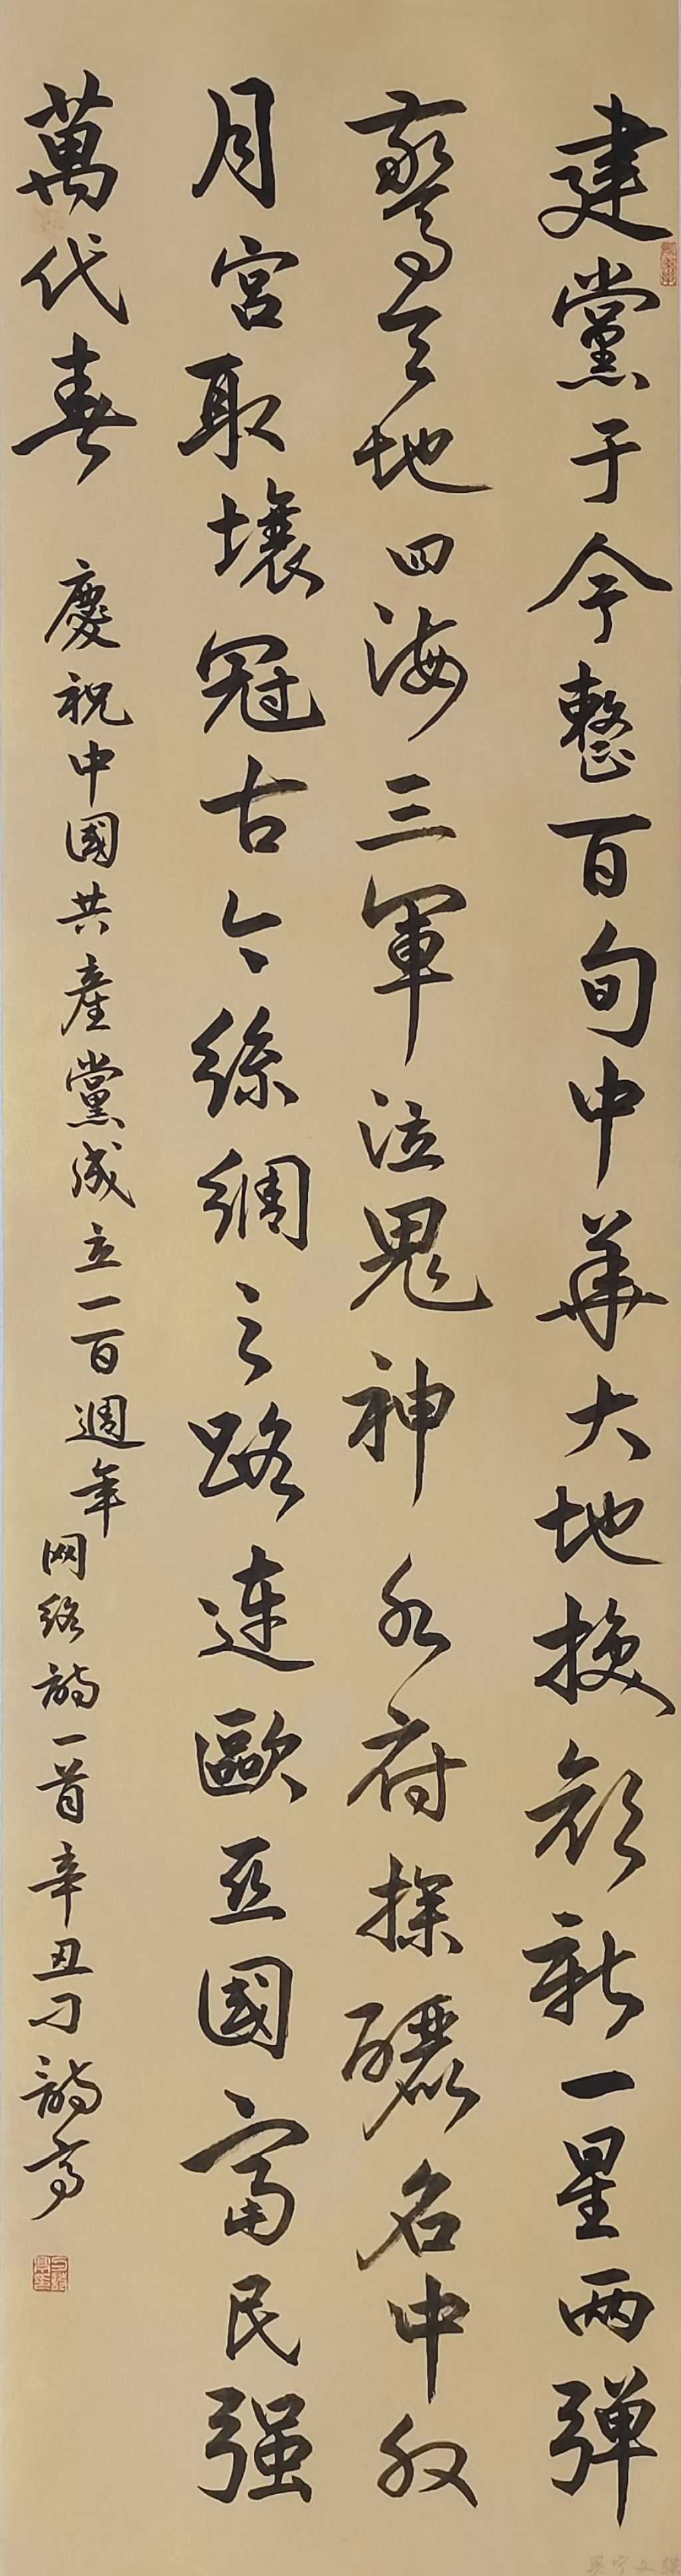 建黨于今整百旬中華大地換顏新一星两弹
驚天地四海三軍泣鬼神水府探驪名中外
月宮取壤冠古今絲綢之路連歐亞國富民强
萬代春 慶祝中國共產黨成立一百週年
网络詩一首辛丑刁詩